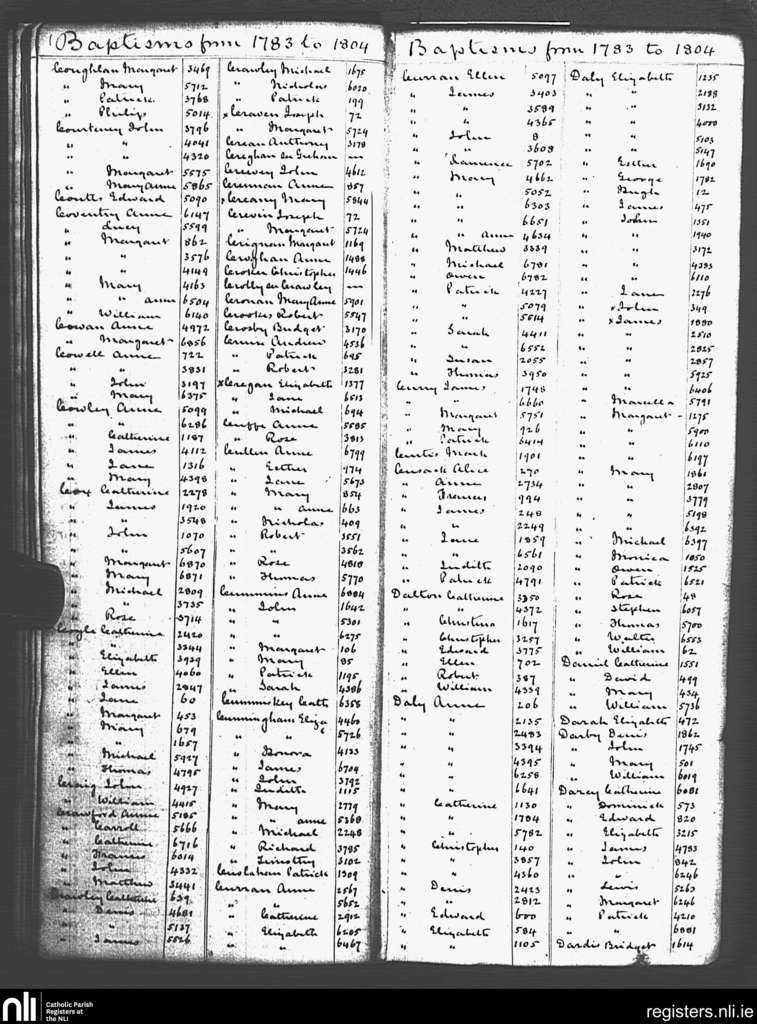 Baptisms from 1783 to 1804
Coughlan Margaret 3469
" Mary 5712
" Patrick 3768
" Philip 5014
Courteney John 3796
" " 4041
" " 4320
" Margaret 5575
" Mary Anne 5865
Coutts Edward 5090
Coventry Anne 6147
" Lucy 5599
" Margaret 862
" " 3576
" " 4149
" Mary 4163
" " anne 6504
" William 6140
Cowan Anne 4972
" Margaret 6856
Cowell Anne 722
" " 3831
" John 3197
" Mary 6375
Cowley Anne 5099
" " 6286
" Catherine 1187
" James 4112
" Jane 1316
" Mary 4398
Cox Catherine 2278
" James 1920
" " 3548
" John 1070
" " 5607
" Margaret 6870
" Mary 6871
" Michael 2809
" " 3735
" Rose 3714
Coyle Catherine 2420
" " 3344
" Elizabeth 3939
" Ellen 4060
" James 2847
" Jane 60
" Margaret 453
" Mary 679
" " 1657
" Michael 5927
" Thomas 4795
Craig John 4927
" William 4415
Crawford Anne 5185
" Carroll 5666
" Catherine 6716
" Francis 6014
" John 4332
" Matthew 3441
Crawley Catherine 639
" Denis 4681
" " 5137
" James 5526
Crawley Michael 1675
" Nicholas 6020
" Patrick 199
x Craven Joseph 72
" Margaret 5724
Crean Anthony 3178
Creghan see Grehan —
Creevey John 4612
Crennan Anne 857
x Creamy Mary 5844
Crevin Joseph 72
" Margaret 5724
Crignan Margaret 1169
Croghan Anne 1488
Croker Christopher 1446
Crolly see Crawley —
Cronan Mary Anne 5901
Crookes Robert 5547
Crosby Bridget 3170
Crump Andrew 4536
" Patrick 695
" Robert 3281
x Creegan Elizabeth 1377
" Jane 6513
" Michael 694
Cuffe Anne 5585
" Rose 3813
Cullen Anne 6799
" Esther 974
" Jane 5673
" Mary 854
" " anne 663
" Nicholas 409
" Robert 3551
" " 3562
" Rose 4818
" Thomas 5770
Cummins Anne 6804
" John 1642
" " 5301
" " 6275
" Margaret 106
" Mary 85
" Patrick 1195
" Sarah 4386
Cummiskey Cath 6358
Cunningham Eliza 4460
" " 5726
" Honora 4133
" James 6704
" John 3792
" Judith 1115
" Mary 2779
" " anne 5368
" Michael 2248
" Richard 3785
" Timothy 3102
Cuolahan Patrick 1309
Curran Anne 2567
" " 5652
" Catherine 2912
" Elizabeth 6205
" " 6467
Baptisms from 1783 to 1804
Curran Ellen 5097
" James 3403
" " 3589
" " 4365
" John 8
" " 3608
" Laurence 5702
" Mary 4662
" " 5052
" " 6303
" " 6651
" " Anne 4634
" Matthew 3339
" Michael 6781
" Owen 6782
" Patrick 4227
" " 5079
" " 5514
" Sarah 4411
" " 6552
" Susan 2055
" Thomas 3950
Curry James 1748
" " 6660
" Margaret 5751
" Mary 926
" Patrick 3414
Curtis Mark 1901
Cusack Alice 270
" Anne 2734
" Frances 994
" James 248
" " 2249
" Jane 1859
" " 6561
" Judith 2090
" Patrick 4791
Dalton Catherine 3350
" " 4372
" Christina 1617
" Christopher 3257
" Edward 3775
" Ellen 702
" Robert 387
" William 4339
Daly Anne 206
" " 2135
" " 2483
" " 3394
" " 4395
" " 6258
" " 6641
" Catherine 1130
" " 1784
" " 5782
" Christopher 140
" " 3857
" " 4360
" Denis 2423
" " 2812
" Edward 600
" Elizabeth 584
" " 1105
Daly Elizabeth 1235
" " 2188
" " 3132
" " 4000
" " 5103
" " 5147
" Esther 1690
" George 1782
" Hugh 12
" James 475
" John 1351
" " 1940
" " 3172
" " 4383
" " 6110
" Jane 2276
" x John 349
" x James 1880
" " 2510
" " 2825
" " 2857
" " 5925
" " 6406
" Marcella 5791
" Margaret - 1275
" " 5900
" " 6110
" " 6197
" Mary 1861
" " 2807
" " 3779
" " 5198
" " 6392
" Michael 6397
" Monica 1050
" Owen 1525
" Patrick 6521
" Rose 48
" Stephen 6057
" Thomas 5700
" Walter 6553
" William 62
Daniel Catherine 1551
" David 499
" Mary 434
" William 5736
Darah Elizabeth 472
Darby Denis 1862
" John 1745
" Mary 501
" William 6019
Darcy Catherine 6081
" Dominick 573
" Edward 820
" Elizabeth 3215
" James 4783
" John 842
" " 6246
" Lewis 5263
" Margaret 6246
" Patrick 4210
" " 6881
Dardis Bridget 1614
nli
Catholic Parish
Registers at
the NLI
registers.nli.ie